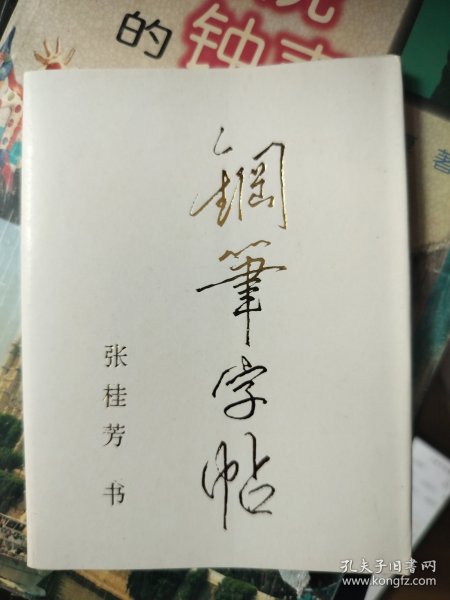 的钟声
鋼筆字帖
张桂芳 书
著
孔夫子旧书网
www.kongfz.com